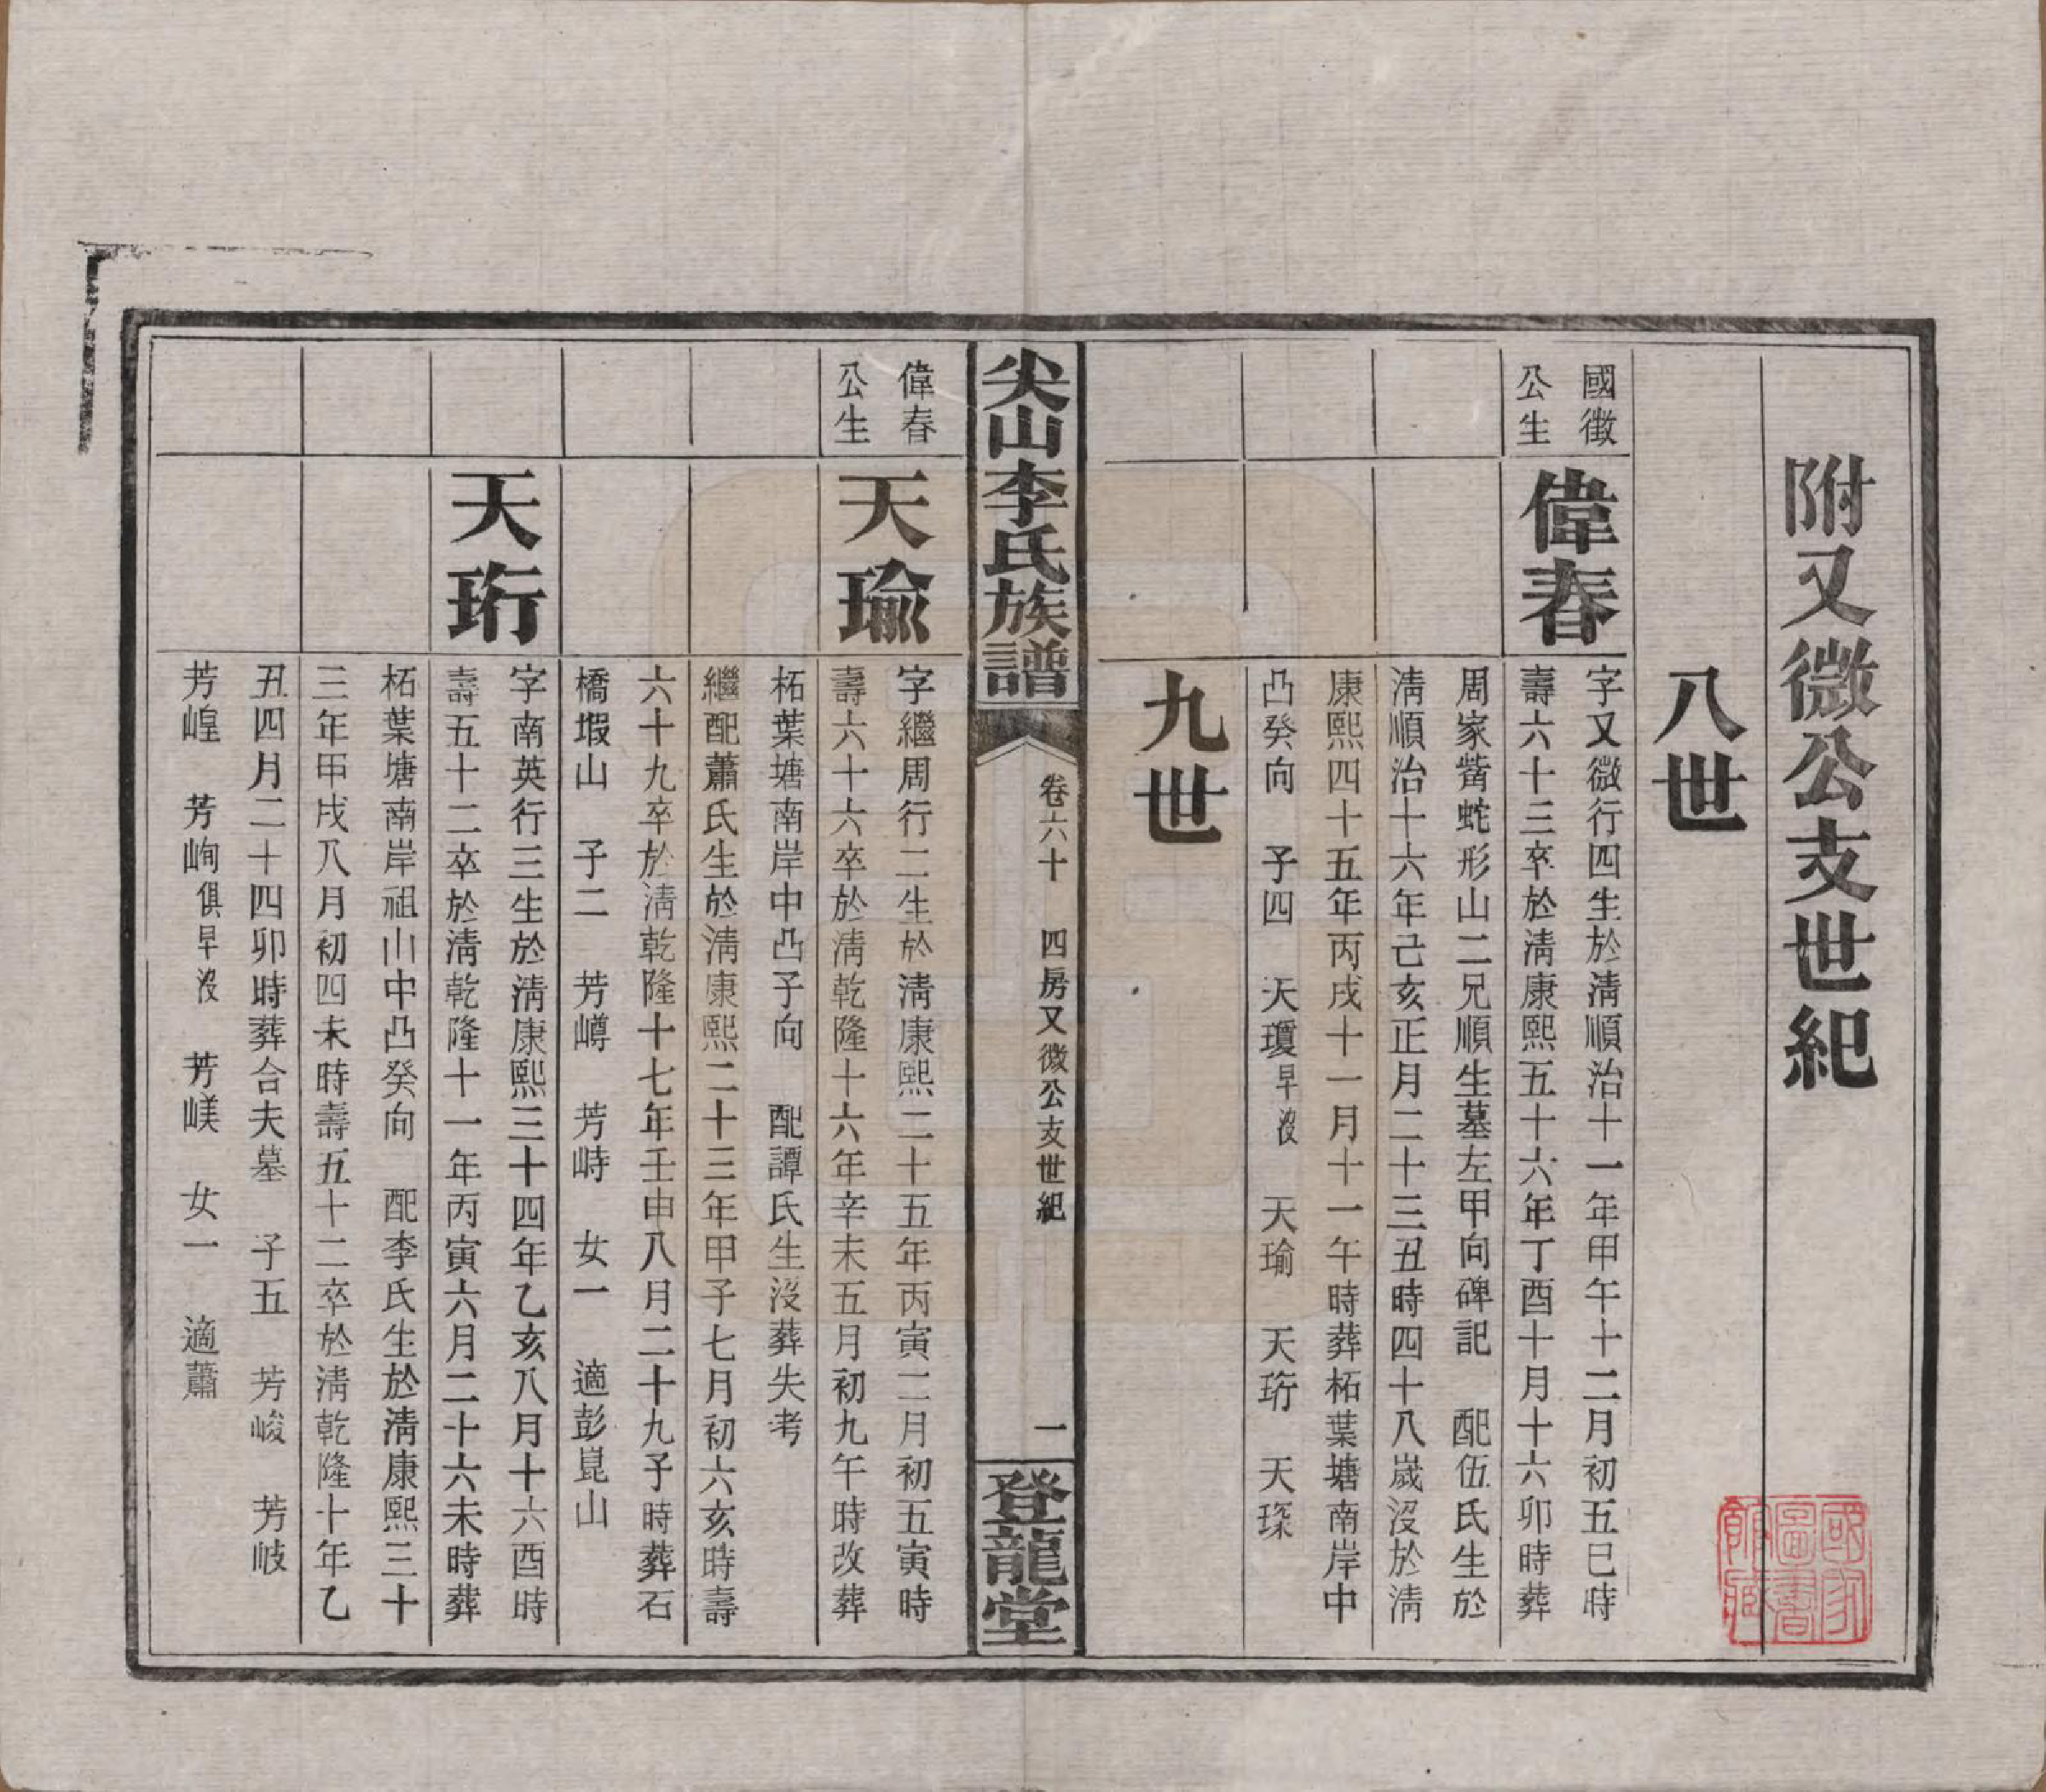 附又微公支世紀
八世
國徵
公生
偉春
字又微行四生於清順治十一年甲午十二月初五巳時
壽六十三卒於清康熙五十六年丁酉十月十六卯時葬
周家觜蛇形山二兄順生墓左甲向碑記　配伍氏生於
清順治十六年己亥正月二十三丑時四十八歲沒於清
康熙四十五年丙戌十一月十一午時葬柘葉塘南岸中
凸癸向　子四　天瓊早沒　天瑜　天珩　天琛
九世
尖山李氏族譜
卷六十　四房又微公支世紀
一
登龍堂
偉春
公生
天瑜
字繼周行二生於清康熙二十五年丙寅二月初五寅時
壽六十六卒於清乾隆十六年辛未五月初九午時改葬
柘葉塘南岸中凸子向　配譚氏生沒葬失考
繼配蕭氏生於清康熙二十三年甲子七月初六亥時壽
六十九卒於清乾隆十七年壬申八月二十九子時葬石
橋塅山　子二　芳嶟　芳峙　女一　適彭崑山
天珩
字南英行三生於清康熙三十四年乙亥八月十六酉時
壽五十二卒於清乾隆十一年丙寅六月二十六未時葬
柘葉塘南岸祖山中凸癸向　配李氏生於清康熙三十
三年甲戌八月初四未時壽五十二卒於清乾隆十年乙
丑四月二十四卯時葬合夫墓　子五　芳峻　芳岐
芳崲　芳峋俱早沒　芳嵄　女一　適蕭
國家圖書館藏